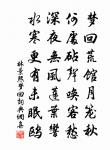 夢回荒館月籠秋
何處砧聲喚客愁
深夜無風蓮葉響
水寒更有未眠鷗